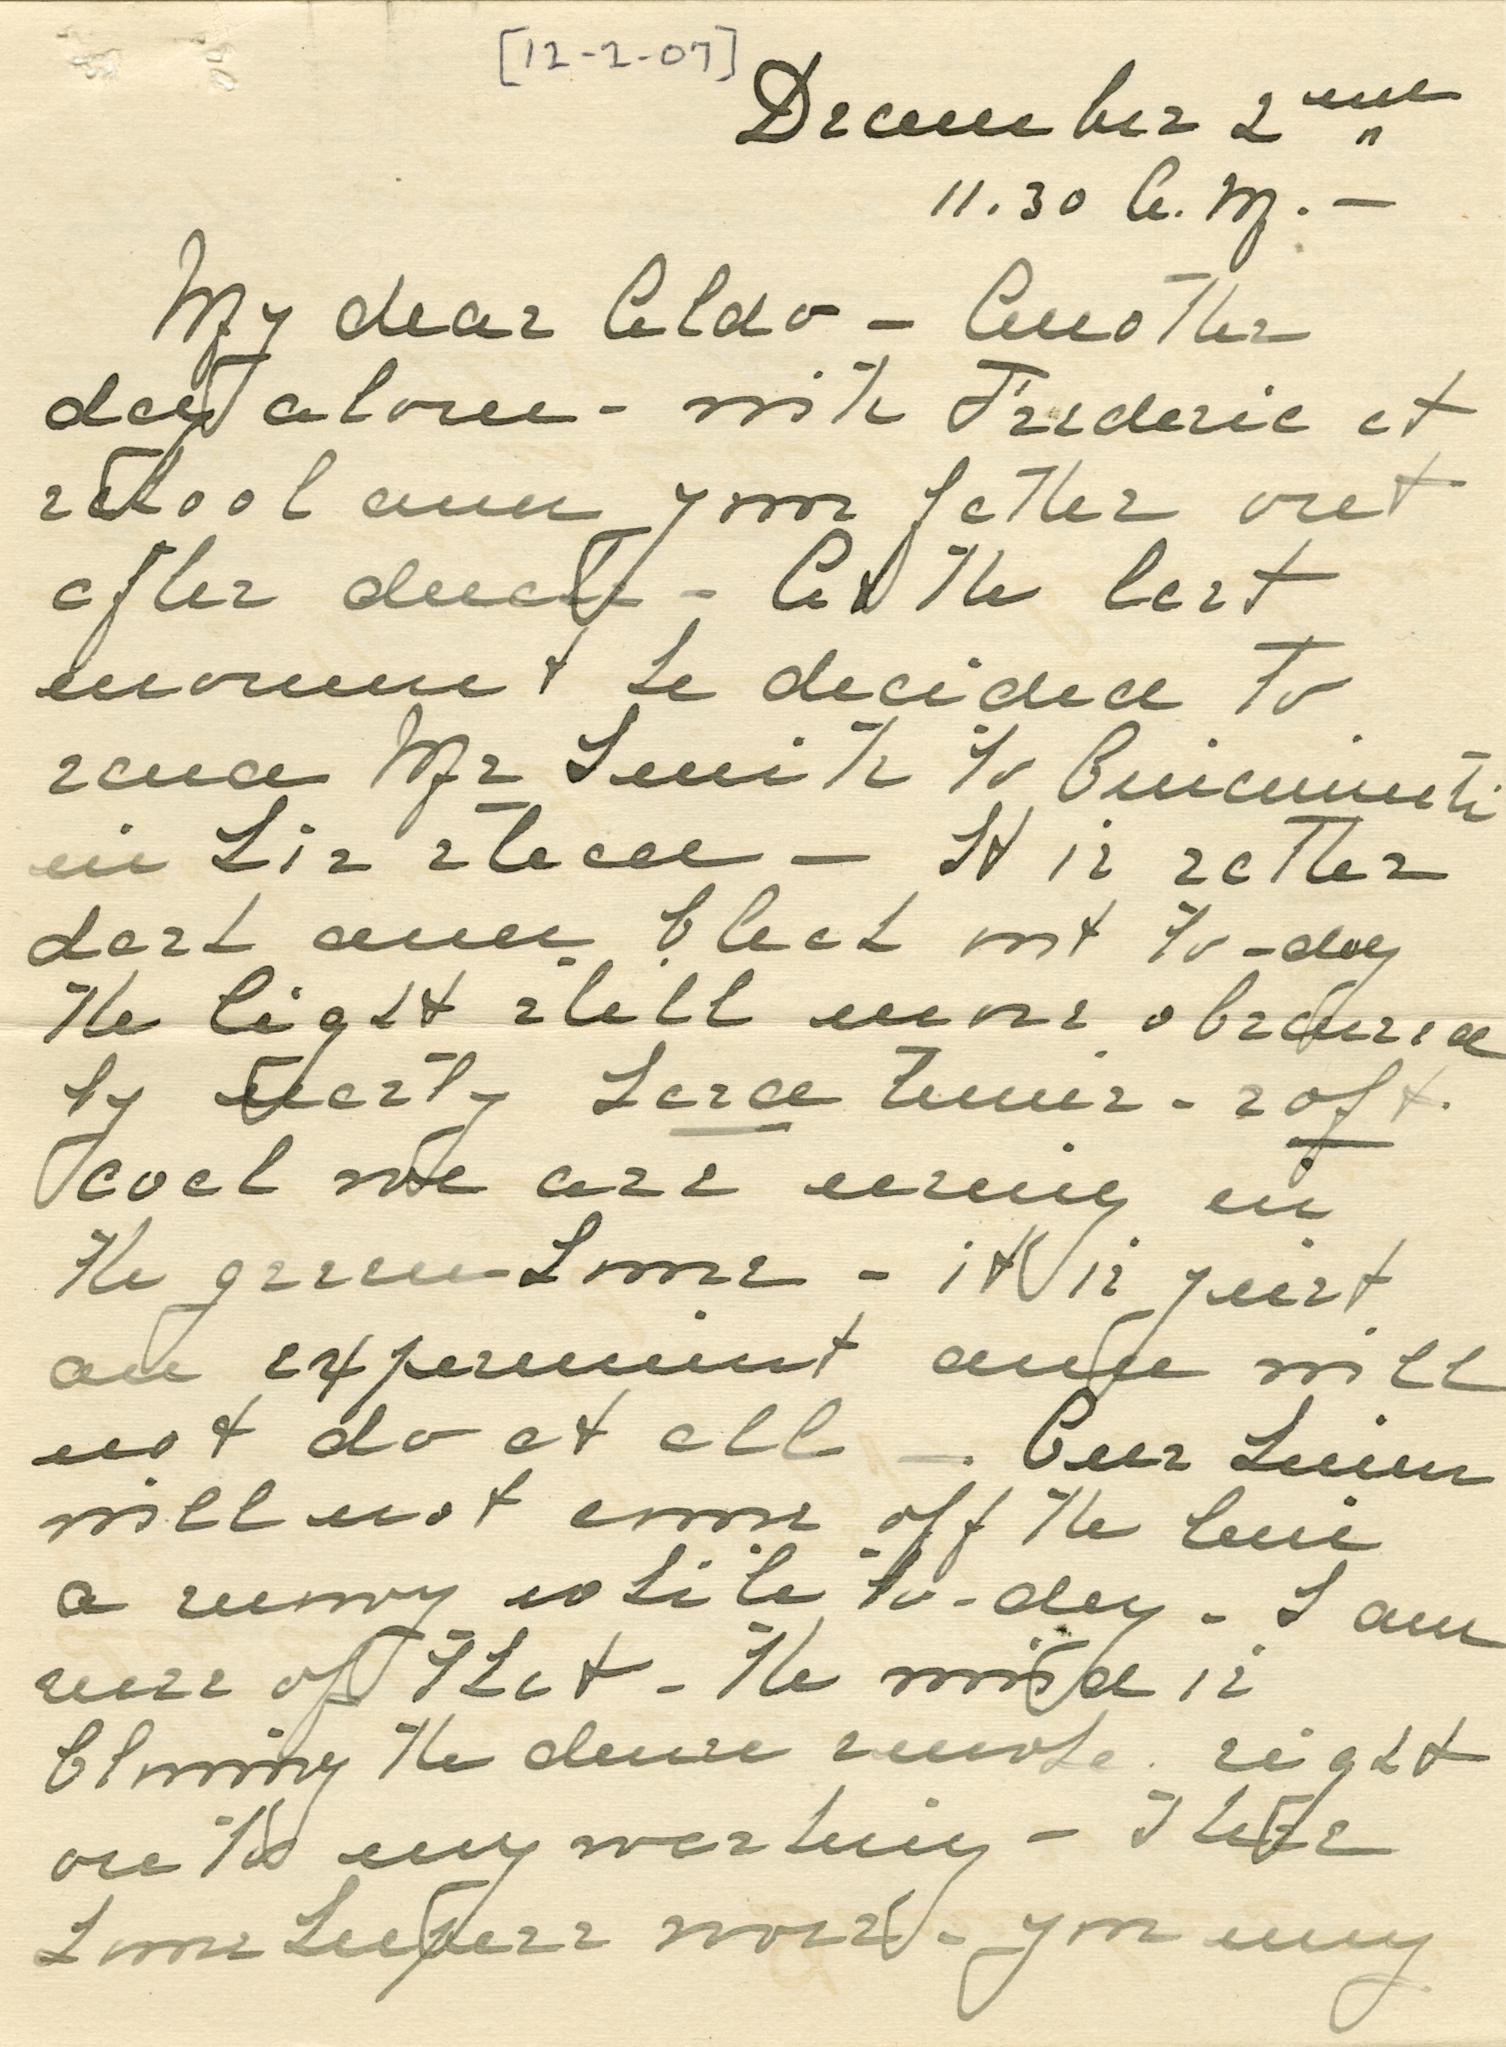 [12-2-07]
December 2nd
11.30 A.M. —
My dear Aldo — Another
day alone - with Frederic at
school and your father out
after ducks - At the last
moment he decided to
send Mr Smith to Cincinnati
in his stead — It is rather
dark and bleak out to-day
the light still more obscured
by nasty hard times - soft
coal we are using in
the green-house - it is just
an experiment and will
not do at all — Our linen
will not come off the line
a snowy white to-day - I am
sure of that - The wind is
blowing the dense smoke right
on to my washing - These
housekeepers woes - you may